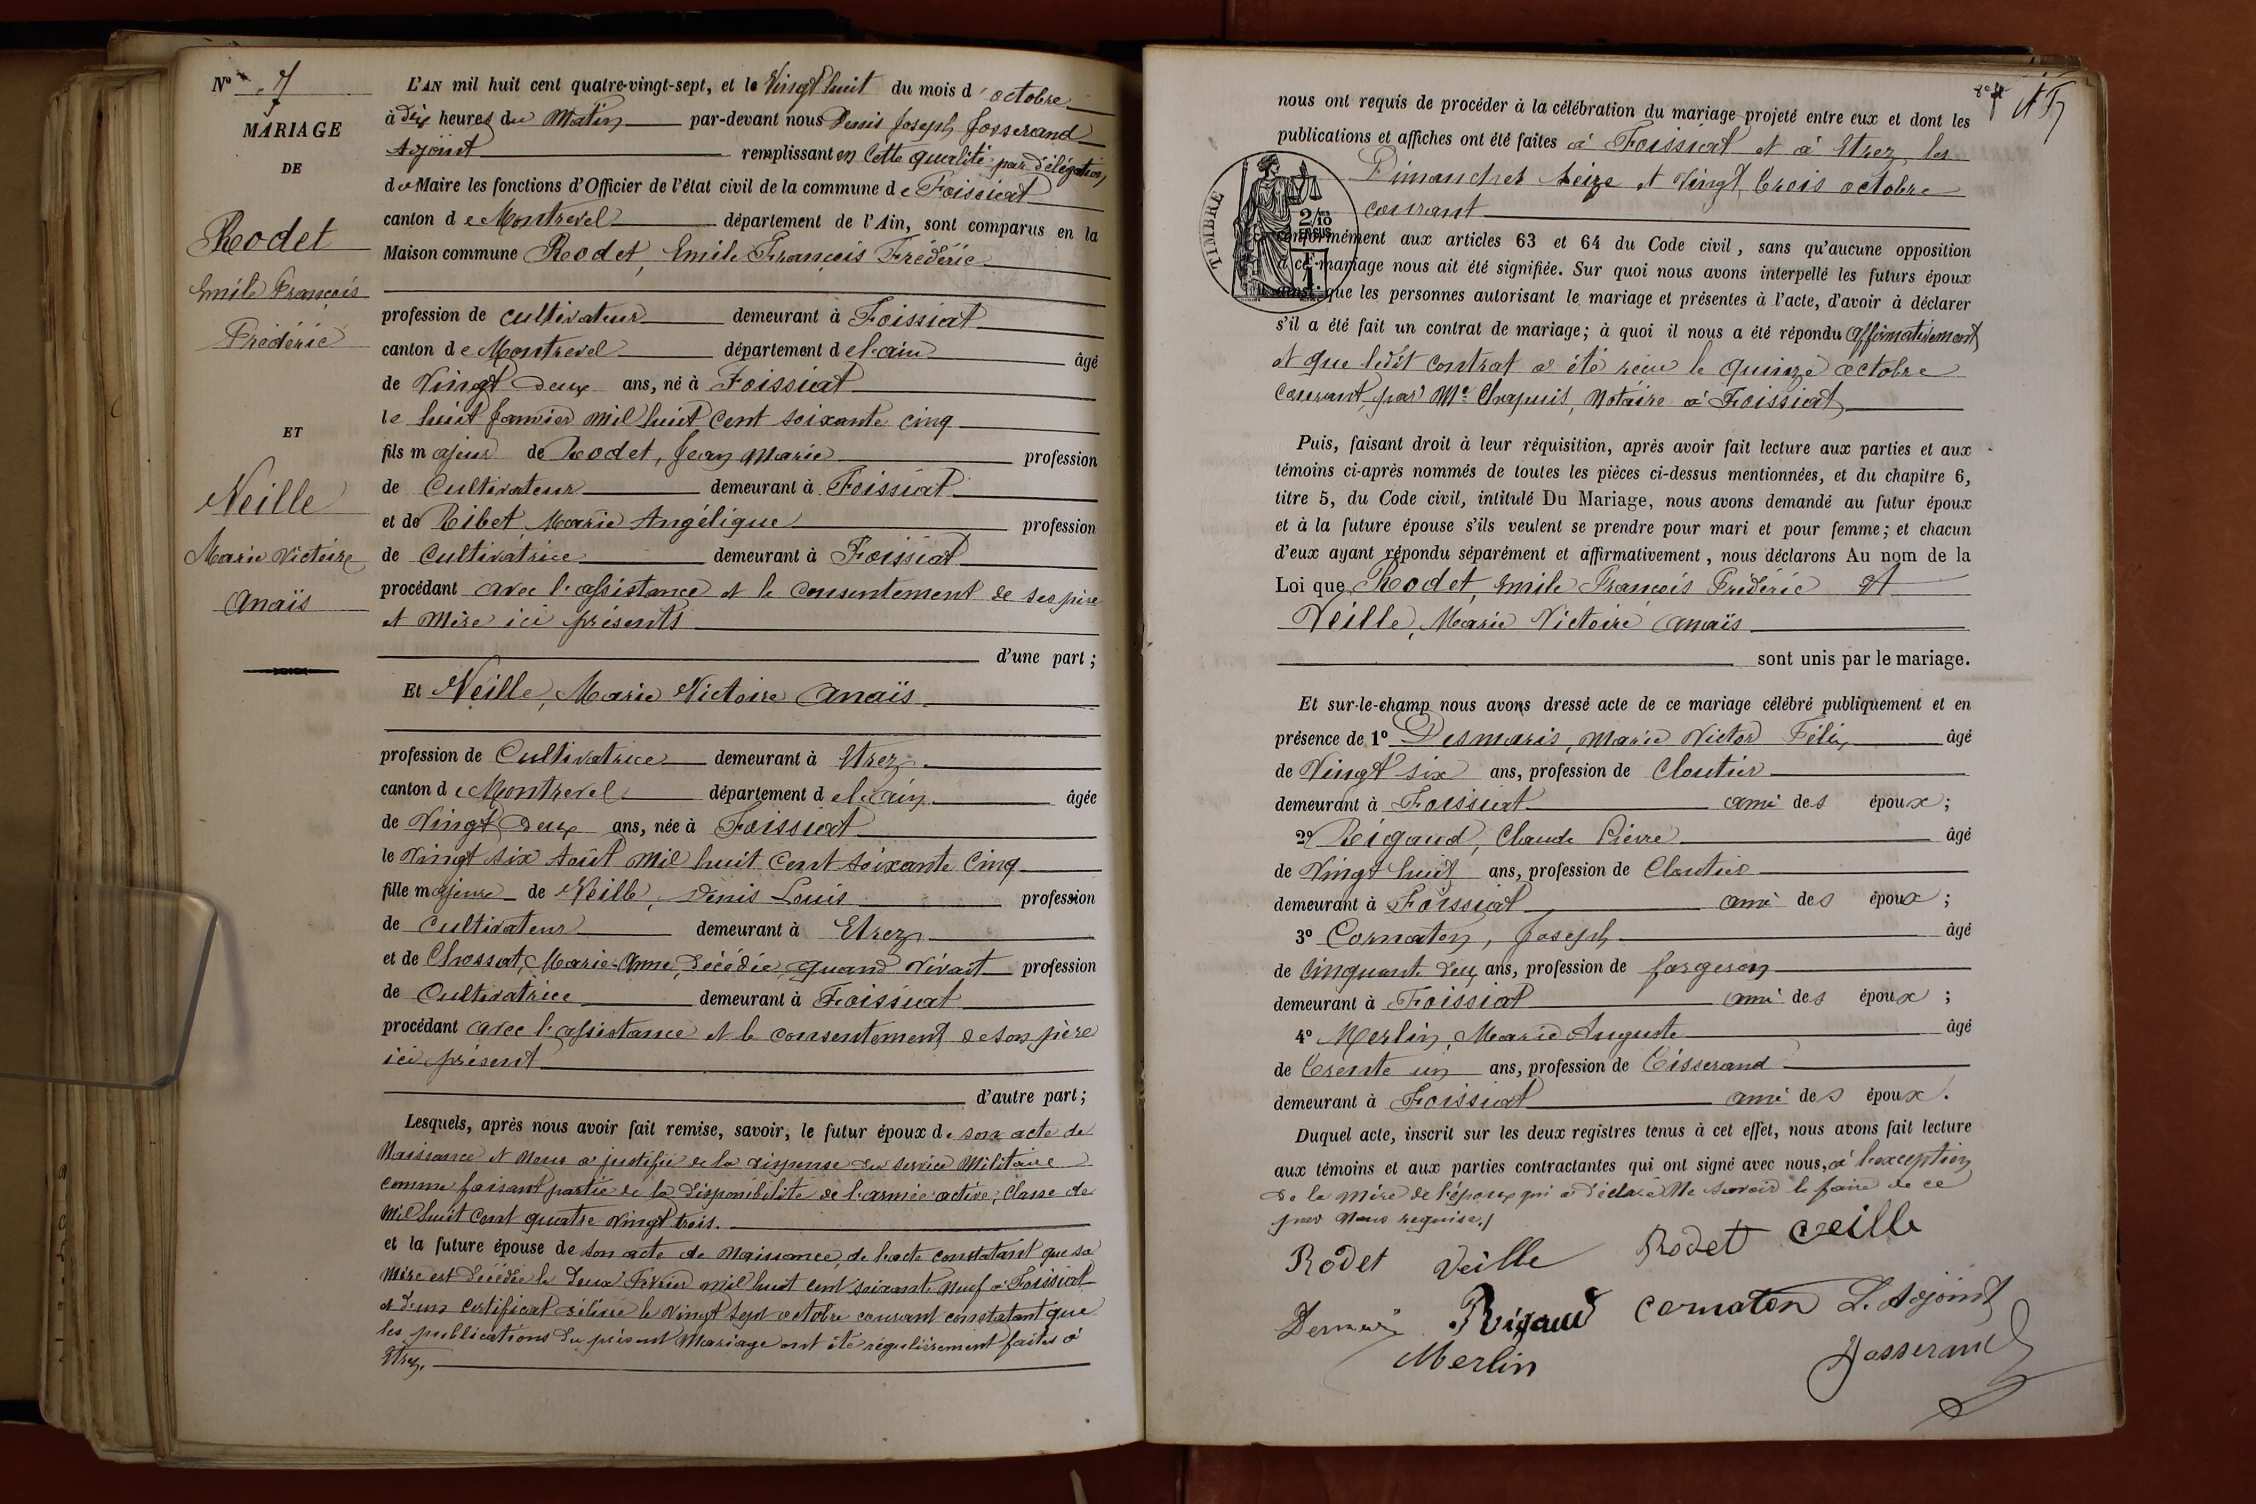 N° 7
MARIAGE
DE
Rodet
Emile François
Frédéric
ET
Veille
Marie Victoire
Anaïs
L'AN mil huit cent quatre-vingt-sept, et le Vingt huit du mois d'octobre
à dix heures du Matin par-devant nous Denis Joseph Josserand
Adjoint remplissant en cette qualité par délégation
du Maire les fonctions d'Officier de l'état civil de la commune de Foissiat
canton de Montrevel département de l'Ain, sont comparus en la
Maison commune Rodet, Emile François Frédéric
profession de cultivateur demeurant à Foissiat
canton de Montrevel département de l'ain âgé
de Vingt deux ans, né à Foissiat
le huit Janvier mil huit cent soixante cinq
fils majeur de Rodet, Jean Marie profession
de Cultivateur demeurant à Foissiat
et de Ribet Marie Angélique profession
de Cultivatrice demeurant à Foissiat
procédant avec l'assistance et le consentement de ses père
et mère ici présents
d'une part;
Et Veille, Marie Victoire Anaïs
profession de Cultivatrice demeurant à Etrez
canton de Montrevel département de l'ain âgée
de Vingt deux ans, née à Foissiat
le Vingt six Août mil huit cent soixante cinq
fille majeure de Veille, Denis Louis profession
de Cultivateur demeurant à Etrez
et de Chossat, Marie-Anne, décédée, quand vivait profession
de Cultivatrice demeurant à Foissiat
procédant avec l'assistance et le consentement de son père
ici présent
d'autre part;
Lesquels, après nous avoir fait remise, savoir, le futur époux de son acte de
Naissance et nous a justifié de la dispense du service Militaire
comme faisant partie de la disponibilité de l'armée active, Classe de
mil huit cent quatre vingt trois.
et la future épouse de son acte de naissance, de l'acte constatant que sa
mère est décédée le deux Février mil huit cent soixante neuf à Foissiat
et d'un certificat délivré le vingt sept octobre courant constatant que
les publications du présent Mariage ont été régulièrement faites à
Etrez.
nous ont requis de procéder à la célébration du mariage projeté entre eux et dont les
publications et affiches ont été faites à Foissiat et à Etrez, les
Dimanches Seize et Vingt trois octobre
courant
TIMBRE
2/10
EN SUS
conformément aux articles 63 et 64 du Code civil, sans qu'aucune opposition
à ce mariage nous ait été signifiée. Sur quoi nous avons interpellé les futurs époux
ainsi que les personnes autorisant le mariage et présentes à l'acte, d'avoir à déclarer
s'il a été fait un contrat de mariage; à quoi il nous a été répondu affirmativement
et que ledit contrat a été reçu le quinze octobre
courant, par Me Chapuis, Notaire à Foissiat
Puis, faisant droit à leur réquisition, après avoir fait lecture aux parties et aux
témoins ci-après nommés de toutes les pièces ci-dessus mentionnées, et du chapitre 6,
titre 5, du Code civil, intitulé Du Mariage, nous avons demandé au futur époux
et à la future épouse s'ils veulent se prendre pour mari et pour femme; et chacun
d'eux ayant répondu séparément et affirmativement, nous déclarons Au nom de la
Loi que Rodet, Emile François Frédéric et
Veille, Marie Victoire Anaïs
sont unis par le mariage.
Et sur-le-champ nous avons dressé acte de ce mariage célébré publiquement et en
présence de 1° Desmaris, Marie Victor Félix âgé
de Vingt six ans, profession de Cloutier
demeurant à Foissiat ami des époux;
2° Rigaud, Claude Pierre âgé
de Vingt huit ans, profession de Cloutier
demeurant à Foissiat ami des époux;
3° Cornaton, Joseph âgé
de Cinquante deux ans, profession de forgeron
demeurant à Foissiat ami des époux;
4° Merlin, Marie Auguste âgé
de Trente un ans, profession de Tisserand
demeurant à Foissiat ami des époux.
Duquel acte, inscrit sur les deux registres tenus à cet effet, nous avons fait lecture
aux témoins et aux parties contractantes qui ont signé avec nous, à l'exception
de la mère de l'époux qui a déclaré ne savoir le faire de ce
par nous requise.
Rodet Veille Rodet Veille
Rigaud Cornaton L'Adjoint
Merlin Josserand